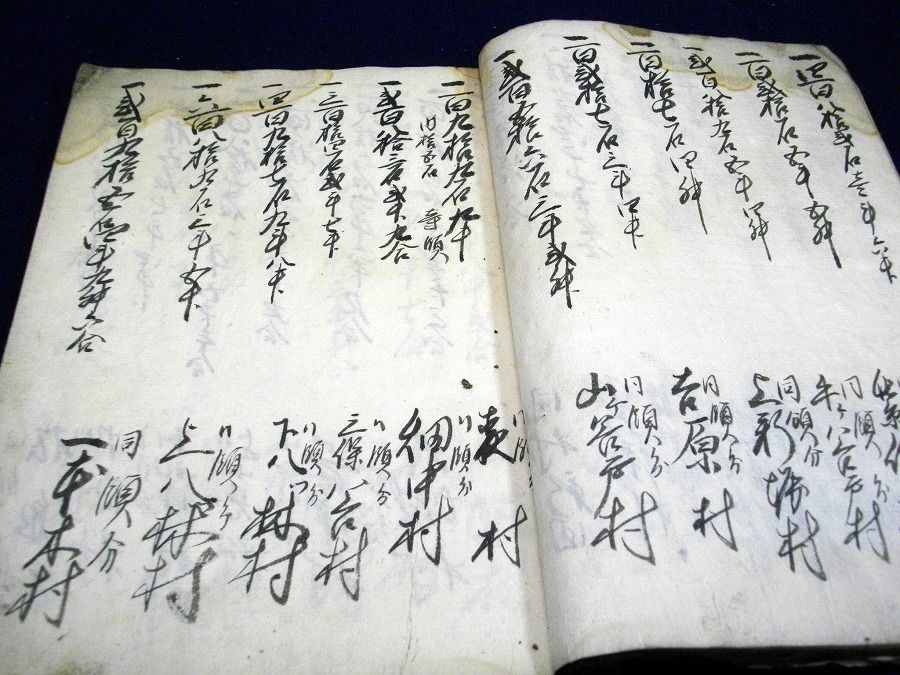 一四百八拾弐石壱斗六升
一百弐拾石五斗五升
一弐百拾九石五斗四升
同領分
牛ヶ谷戸村
一百拾七石四升
同領分
上新堀村
一百弐拾七石三斗四升
同領分
吉原村
一弐百五拾六石三斗弐升
同領分
山ヶ谷戸村
一百九拾九石九斗
内拾五石 寺領
表村
一弐百八拾三石弐斗九合
同領分
畑中村
一三百拾四石弐斗七升
同領分
三保谷村
一四百九拾七石九斗八升
同領分
下八ツ林村
一六百八拾九石三斗五升
同領分
上八ツ林村
一弐百九拾五石四斗九升六合
同領分
一本木村